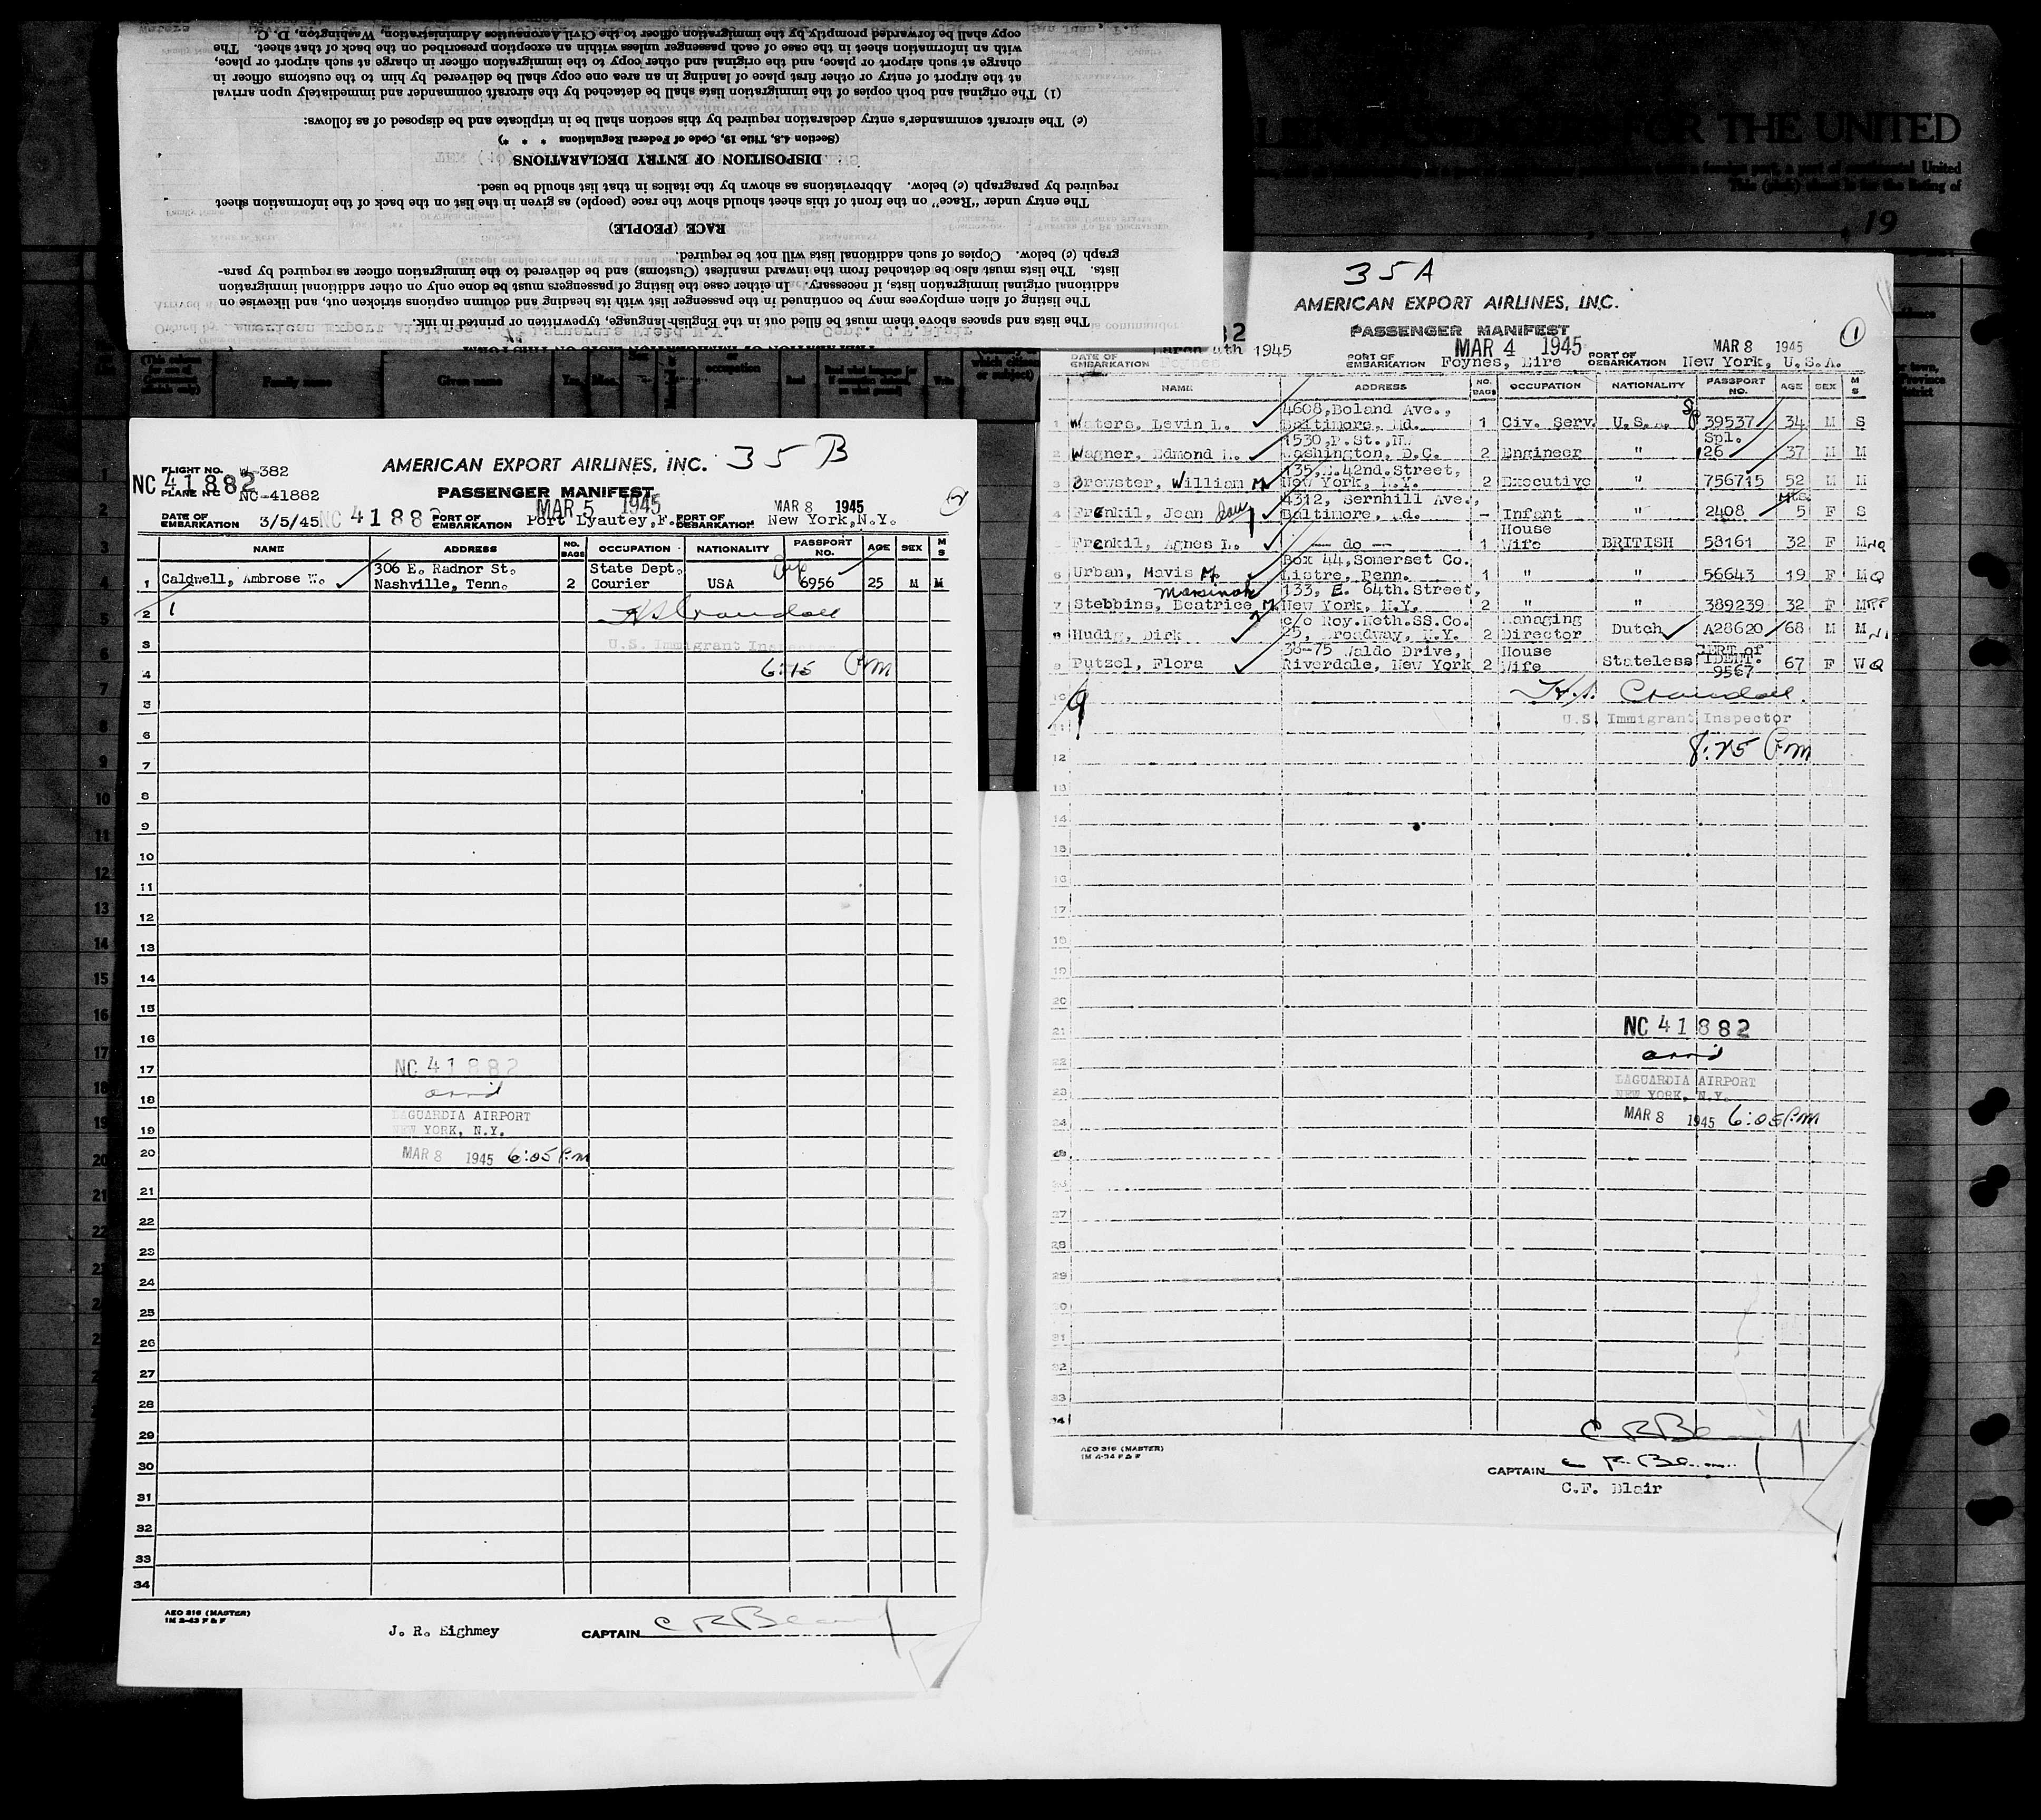 The lists and spaces above them must be filled out in the English language, typewritten or printed in ink.
The listing of alien employees may be continued in the passenger list with its heading and column captions stricken out, and likewise on
additional original immigration lists, if necessary. In either case the listing of passengers must be done only on other additional immigration
lists. The lists must also be detached from the inward manifest (Customs) and be delivered to the immigration officer as required by para-
graph (c) below. Copies of such additional lists will not be required.
RACE (PEOPLE)
The entry under "Race" on the front of this sheet should show the race (people) as given in the list on the back of the information sheet
required by paragraph (c) below. Abbreviations as shown by the italics in that list should be used.
DISPOSITION OF ENTRY DECLARATIONS
(Section 4.8, Title 19, Code of Federal Regulations * * *)
(c) The aircraft commander's entry declaration required by this section shall be in triplicate and be disposed of as follows:
(1) The original and both copies of the immigration lists shall be detached by the aircraft commander and immediately upon arrival
at the airport of entry or other first place of landing in an area one copy shall be delivered by him to the customs officer in
charge at such airport or place, and the original and other copy to the immigration officer in charge at such airport or place,
with an information sheet in the case of each passenger unless within an exception prescribed on the back of that sheet. The
copy shall be forwarded promptly by the immigration officer to the Civil Aeronautics Administration, Washington, D. C.
FOR THE UNITED
19
35 B
AMERICAN EXPORT AIRLINES, INC.
PASSENGER MANIFEST
FLIGHT NO. W-382
NC 41882
PLANE NC NC-41882
MAR 5 1945
MAR 8 1945
DATE OF EMBARKATION 3/5/45 NC 4188 PORT OF EMBARKATION Port Lyautey, F. PORT OF DEBARKATION New York, N.Y.
NAME ADDRESS NO. BAGS OCCUPATION NATIONALITY PASSPORT NO. AGE SEX M S
1 Caldwell, Ambrose W. 306 E. Radnor St. Nashville, Tenn. 2 State Dept. Courier USA 6956 25 M M
2 1
3 U.S. Immigrant Inspector
4 6:15 Pm
5
6
7
8
9
10
11
12
13
14
15
16
17 NC 41882
arr'd
18 LAGUARDIA AIRPORT
19 NEW YORK, N.Y.
20 MAR 8 1945 6:05 P.m
21
22
23
24
25
26
27
28
29
30
31
32
33
34
AEO 316 (MASTER)
1M 2-43 F & F
J. R. Eighmey CAPTAIN
35A
AMERICAN EXPORT AIRLINES, INC.
PASSENGER MANIFEST
1
MAR 4 1945
MAR 8 1945
DATE OF EMBARKATION March 4th 1945 PORT OF EMBARKATION Foynes, Eire PORT OF DEBARKATION New York, U.S.A.
NAME ADDRESS NO. BAGS OCCUPATION NATIONALITY PASSPORT NO. AGE SEX M S
1 Waters, Levin L. 4608, Boland Ave., Baltimore, Md. 1 Civ. Serv. U.S.A. Sp 39537 34 M S
2 Wagner, Edmond H. 1530, P. St., NW Washington, D.C. 2 Engineer " Spl. 126 37 M M
3 Brewster, William M. 135, E. 42nd. Street, New York, N.Y. 2 Executive " 756715 52 M M
4 Frenkil, Jean 4312, Sernhill Ave., Baltimore, Md. - Infant " 2408 5 Mts. F S
5 Frenkil, Agnes L. - do - 1 House Wife BRITISH 58161 32 F M NQ
6 Urban, Mavis M. Box 44, Somerset Co. Listre, Penn. 1 " " 56643 19 F M Q
7 Stebbins, Beatrice M. 133, E. 64th. Street, New York, N.Y. 2 " " 389239 32 F M
8 Hudig, Dirk c/o Roy. Neth. SS. Co. 25, Broadway, N.Y. 2 Managing Director Dutch A28620 68 M M
9 Putzel, Flora 38-75 Waldo Drive, Riverdale, New York 2 House Wife Stateless CERT of IDENT. 9567 67 F W Q
10
9
11 U.S. Immigrant Inspector
12 8:25 Pm
13
14
15
16
17
18
19
20
21 NC 41882
22 arr'd
23 LAGUARDIA AIRPORT
NEW YORK, N.Y.
24 MAR 8 1945 6:05 P.m
26
27
28
29
30
31
32
33
34
AEO 316 (MASTER)
1M 4-34 F & F
CAPTAIN
C.F. Blair